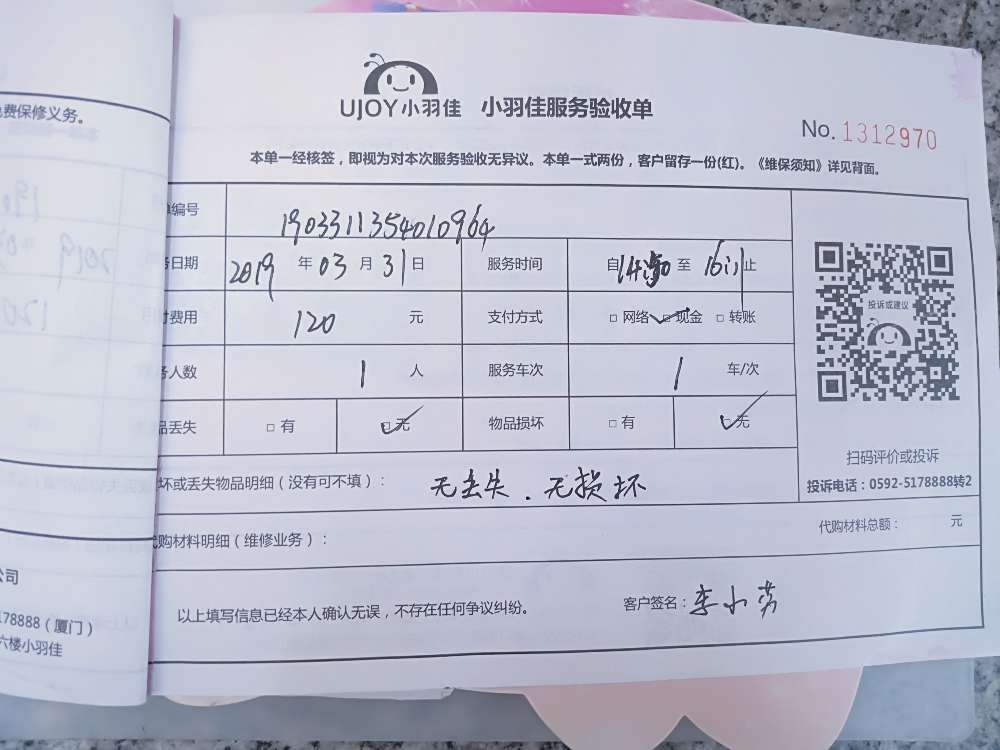 免费保修义务。
UJOY小羽佳 小羽佳服务验收单
No. 1312970
本单一经核签，即视为对本次服务验收无异议。本单一式两份，客户留存一份(红)。《维保须知》详见背面。
单编号 1903311354010964
务日期 2019 年 03 月 31 日 服务时间 自 至 16:11 止
付费用 120 元 支付方式 □ 网络 ☑ 现金 □ 转账
务人数 1 人 服务车次 1 车/次
品丢失 □ 有 ☑ 无 物品损坏 □ 有 ☑ 无
投诉或建议
扫码评价或投诉
投诉电话：0592-5178888转2
坏或丢失物品明细（没有可不填）： 无丢失．无损坏
代购材料明细（维修业务）： 代购材料总额： 元
以上填写信息已经本人确认无误，不存在任何争议纠纷。 客户签名：李小芳
公司
178888（厦门）
六楼小羽佳